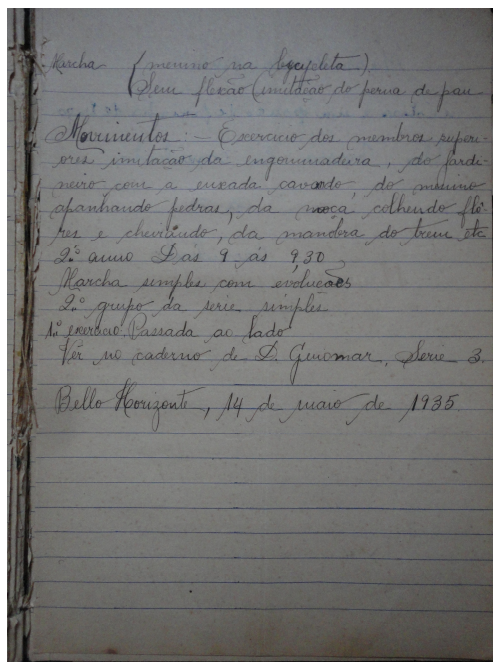 Marcha (menino na bycicleta.)
Sem flexão (imitação do perna de pau
Movimentos: - Exercicio dos membros superi-
ores imitação da engommadeira, do jardi-
neiro com a enxada cavando, do menino
apanhando pedras, da moça colhendo flô-
res e cheirando, da manobra do trem etc
2º anno Das 9 ás 9,30
Marcha simples com evoluções
2º grupo da serie simples
1º exercicio. Passada ao lado
Ver no caderno de D. Guiomar, Serie 3.
Bello Horizonte, 14 de maio de 1935